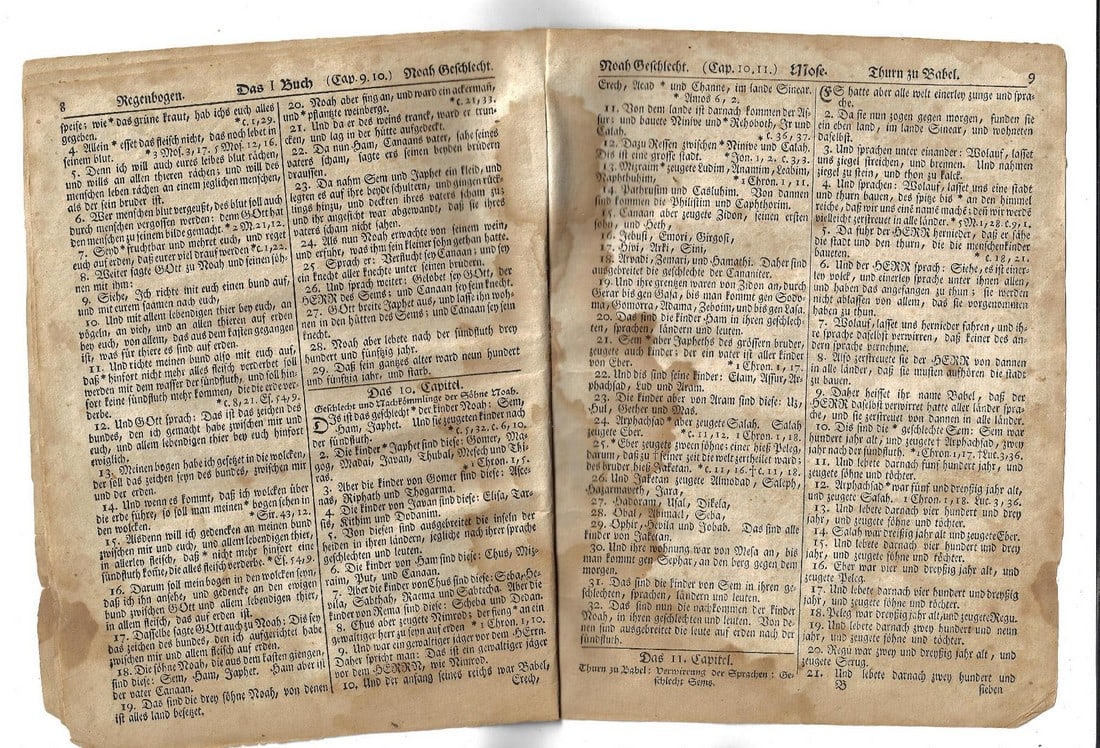 8 Regenbogen. Das I Buch (Cap. 9. 10.) Noah Geschlecht.
speise; wie * das grüne kraut, hab ich euch alles
gegeben. * c. 1, 29.
4. Allein * esset das fleisch nicht, das noch lebet in
seinem blut. * 3 Mos. 3, 17. 5 Mos. 12, 16.
5. Denn ich will auch eures leibes blut rächen,
und wills an allen thieren rächen; und will des
menschen leben rächen an einem jeglichen menschen,
als der sein bruder ist.
6. Wer menschen blut vergeußt, des blut soll auch
durch menschen vergossen werden: denn GOtt hat
den menschen zu seinem bilde gemacht. * 2 M. 21, 12.
7. Seyd * fruchtbar und mehret euch, und reget
euch auf erden, daß eurer viel drauf werden. * c. 1, 22.
8. Weiter sagte GOtt zu Noah und seinen söh-
nen mit ihm:
9. Siehe, Ich richte mit euch einen bund auf,
und mit eurem saamen nach euch,
10. Und mit allem lebendigen thier bey euch, an
vögeln, an vieh, und an allen thieren auf erden
bey euch, von allem, das aus dem kasten gegangen
ist, was für thiere es sind auf erden.
11. Und richte meinen bund also mit euch auf,
daß * hinfort nicht mehr alles fleisch verderbet soll
werden mit dem wasser der sündfluth, und soll hin-
fort keine sündfluth mehr kommen, die die erde ver-
derbe. * c. 8, 21. Es. 54, 9.
12. Und GOtt sprach: Das ist das zeichen des
bundes, den ich gemacht habe zwischen mir und
euch, und allem lebendigen thier bey euch hinfort
ewiglich.
13. Meinen bogen hab ich gesetzt in die wolcken,
der soll das zeichen seyn des bundes, zwischen mir
und der erden.
14. Und wenn es kommt, daß ich wolcken über
die erde führe, so soll man meinen * bogen sehen in
den wolcken. * Sir. 43, 12.
15. Alsdenn will ich gedencken an meinen bund
zwischen mir und euch, und allem lebendigen thier,
in allerley fleisch, daß * nicht mehr hinfort eine
sündfluth kome, die alles fleisch verderbe. * Es. 54, 9.
16. Darum soll mein bogen in den wolcken seyn,
daß ich ihn ansehe, und gedencke an den ewigen
bund zwischen GOtt und allem lebendigen thier,
in allem fleisch, das auf erden ist.
17. Dasselbe sagte GOtt auch zu Noah: Dis sey
das zeichen des bundes, den ich aufgerichtet habe
zwischen mir und allem fleisch auf erden.
18. Die söhne Noah, die aus dem kasten giengen,
sind diese: Sem, Ham, Japhet. Ham aber ist
der vater Canaan.
19. Das sind die drey söhne Noah, von denen
ist alles land besetzet.
20. Noah aber fing an, und ward ein ackerman,
und * pflantzte weinberge. * c. 21, 33.
21. Und da er des weins tranck, ward er trun-
cken, und lag in der hütte aufgedeckt.
22. Da nun Ham, Canaans vater, sahe seines
vaters scham, sagte ers seinen beyden brüdern
draussen.
23. Da nahm Sem und Japhet ein kleid, und
legten es auf ihre beyde schultern, und gingen rück-
lings hinzu, und deckten ihres vaters scham zu;
und ihr angesicht war abgewandt, daß sie ihres
vaters scham nicht sahen.
24. Als nun Noah erwachte von seinem wein,
und erfuhr, was ihm sein kleiner sohn gethan hatte.
25 Sprach er: Verflucht sey Canaan; und sey
ein knecht aller knechte unter seinen brüdern.
26. Und sprach weiter: Gelobet sey GOtt, der
HERR des Sems; und Canaan sey sein knecht.
27. GOtt breite Japhet aus, und lasse ihn woh-
nen in den hütten des Sems; und Canaan sey sein
knecht.
28. Noah aber lebete nach der sündfluth drey
hundert und funfzig jahr.
29. Daß sein gantzes alter ward neun hundert
und funfzig jahr, und starb.
Das 10. Capitel.
Geschlecht und Nachkömmlinge der Söhne Noah.
DIs ist das geschlecht * der kinder Noah: Sem,
Ham, Japhet. Und sie zeugeten kinder nach
der sündfluth. * c. 5, 32. c. 6, 10.
2. Die kinder * Japhet sind diese: Gomer, Ma-
gog, Madai, Javan, Thubal, Mesech und Thi-
ras. * 1 Chron. 1, 5.
3. Aber die kinder von Gomer sind diese: Asce-
nas, Riphath und Thogarma.
4. Die kinder von Javan sind diese: Elisa, Tar-
sis, Kithim und Dodanim.
5. Von diesen sind ausgebreitet die inseln der
heiden in ihren ländern, jegliche nach ihrer sprache
geschlechten und leuten.
6. Die kinder von Ham sind diese: Chus, Miz-
raim, Put, und Canaan.
7. Aber die kinder von Chus sind diese: Seba, He-
vila, Sabthah, Raema und Sabtecha. Aber die
kinder von Rema sind diese: Scheba und Dedan.
8. Chus aber zeugete Nimrod; der fung * an ein
gewaltiger herr zu seyn auf erden * 1 Chron. 1, 10.
9. Und war ein gewaltiger jäger vor dem HErrn.
Daher spricht man: Das ist ein gewaltiger jäger
vor dem HERRN, wie Nimrod.
10. Und der anfang seines reichs war Babel,
Erech,
Noah Geschlecht. (Cap. 10, 11.) Mose. Thurn zu Babel. 9
Erech, Acad * und Channe, im lande Sinear.
* Amos 6, 2.
11. Von dem lande ist darnach kommen der As-
sur: und bauete Ninive und * Rehoboth, Ir und
Calah. * c. 36, 37.
12. Dazu Ressen zwischen * Ninive und Calah.
Dis ist eine grosse stadt. * Jon. 1, 2. c. 3, 3.
13. Mizraim * zeugete Ludim, Anamim, Leabim,
Naphthuhim, * 1 Chron. 1, 11.
14. Pathrusim und Casluhim. Von dannen
sind kommen die Philistim und Caphthorim.
15. Canaan aber zeugete Zidon, seinen ersten
sohn, und Heth,
16. Jebusi, Emori, Girgosi,
17. Hivi, Arki, Sini,
18. Arvadi, Zemari, und Hamathi. Daher sind
ausgebreitet die geschlechte der Cananiter.
19. Und ihre grenzen waren von Zidon an, durch
Gerar bis gen Gasa, bis man kommt gen Sodo-
ma, Gomorra, Adama, Zeboim, und bis gen Lasa.
20. Das sind die kinder Ham in ihren geschlech-
ten, sprachen, ländern und leuten.
21. Sem * aber Japheths des grössern bruder,
zeugete auch kinder; der ein vater ist aller kinder
von Eber. * 1 Chron. 1, 17.
22. Und dis sind seine kinder: Elam, Assur, Ar-
phachsad, Lud und Aram.
23. Die kinder aber von Aram sind diese: Uz,
Hul, Gether und Mas.
24. Arphachsad * aber zeugete Salah. Salah
zeugete Eber. * c. 11, 12. 1 Chron. 1, 18.
25. * Eber zeugete zween söhne: einer hieß Peleg,
darum, daß zu † seiner zeit die welt zertheilet ward;
des bruder hieß Jaketan. * c. 11, 16. † c. 11, 18.
26. Und Jaketan zeugete Almodad, Saleph,
Hazarmaveth, Jara,
27. Hadoram, Usal, Dikela,
28. Obal, Abimael, Seba,
29. Ophir, Hevila und Jobab. Das sind alle
kinder von Jaketan.
30. Und ihre wohnung war von Mesa an, bis
man kommt gen Sephar, an den berg gegen dem
morgen.
31. Das sind die kinder von Sem in ihren ge-
schlechten, sprachen, ländern und leuten.
32. Das sind nun die nachkommen der kinder
Noah, in ihren geschlechten und leuten. Von de-
nen sind ausgebreitet die leute auf erden nach der
sündfluth.
Das 11. Capitel.
Thurn zu Babel: Verwirrung der Sprachen: Ge-
schlecht Sems.
ES hatte aber alle welt einerley zunge und spra-
che.
2. Da sie nun zogen gegen morgen, funden sie
ein eben land, im lande Sinear, und wohneten
daselbst.
3. Und sprachen unter einander: Wolauf, lasset
uns ziegel streichen, und brennen. Und nahmen
ziegel zu stein, und thon zu kalck.
4. Und sprachen: Wolauf, lasset uns eine stadt
und thurn bauen, des spitze bis * an den himmel
reiche, daß wir uns eine namé mache; deñ wir werdē
vielleicht zerstreuet in alle länder. * 5 M. 1, 28. c. 9, 1.
5. Da fuhr der HERR hernieder, daß er sähe
die stadt und den thurn, die die menschenkinder
baueten. * c. 18, 21.
6. Und der HERR sprach: Siehe, es ist einer-
ley volck, und einerley sprache unter ihnen allen,
und haben das angefangen zu thun; sie werden
nicht ablassen von allem, das sie vorgenommen
haben zu thun.
7. Wolauf, lasset uns hernieder fahren, und ih-
re sprache daselbst verwirren, daß keiner des an-
dern sprache vernehme.
8. Also zerstreuete sie der HERR von dannen
in alle länder, daß sie musten aufhören die stadt
zu bauen.
9. Daher heisset ihr name Babel, daß der
HERR daselbst verwirret hatte aller länder spra-
che, und sie zerstreuet von dannen in alle länder.
10. Dis sind die * geschlechte Sem: Sem war
hundert jahr alt, und zeugete † Arphachsad, zwey
jahr nach der sündfluth. * 1 Chron. 1, 17. † Luc. 3, 36.
11. Und lebete darnach fünf hundert jahr, und
zeugete söhne und töchter.
12. Arphachsad * war fünf und dreyßig jahr alt,
und zeugete Salah. 1 Chron. 1, 18. Luc. 3, 36.
13. Und lebete darnach vier hundert und drey
jahr, und zeugete söhne und töchter.
14. Salah war dreyßig jahr alt und zeugete Eber.
15. Und lebete darnach vier hundert und drey
jahr, und zeugete söhne und töchter.
16. Eber war vier und dreyßig jahr alt, und
zeugete Peleg.
17. Und lebete darnach vier hundert und dreyßig
jahr, und zeugete söhne und töchter.
18. Peleg war dreyßig jahr alt, und zeugete Regu.
19. Und lebete darnach zwey hundert und neun
jahr, und zeugete söhne und töchter.
20. Regu war zwey und dreyßig jahr alt, und
zeugete Serug.
21. Und lebete darnach zwey hundert und
B sieben